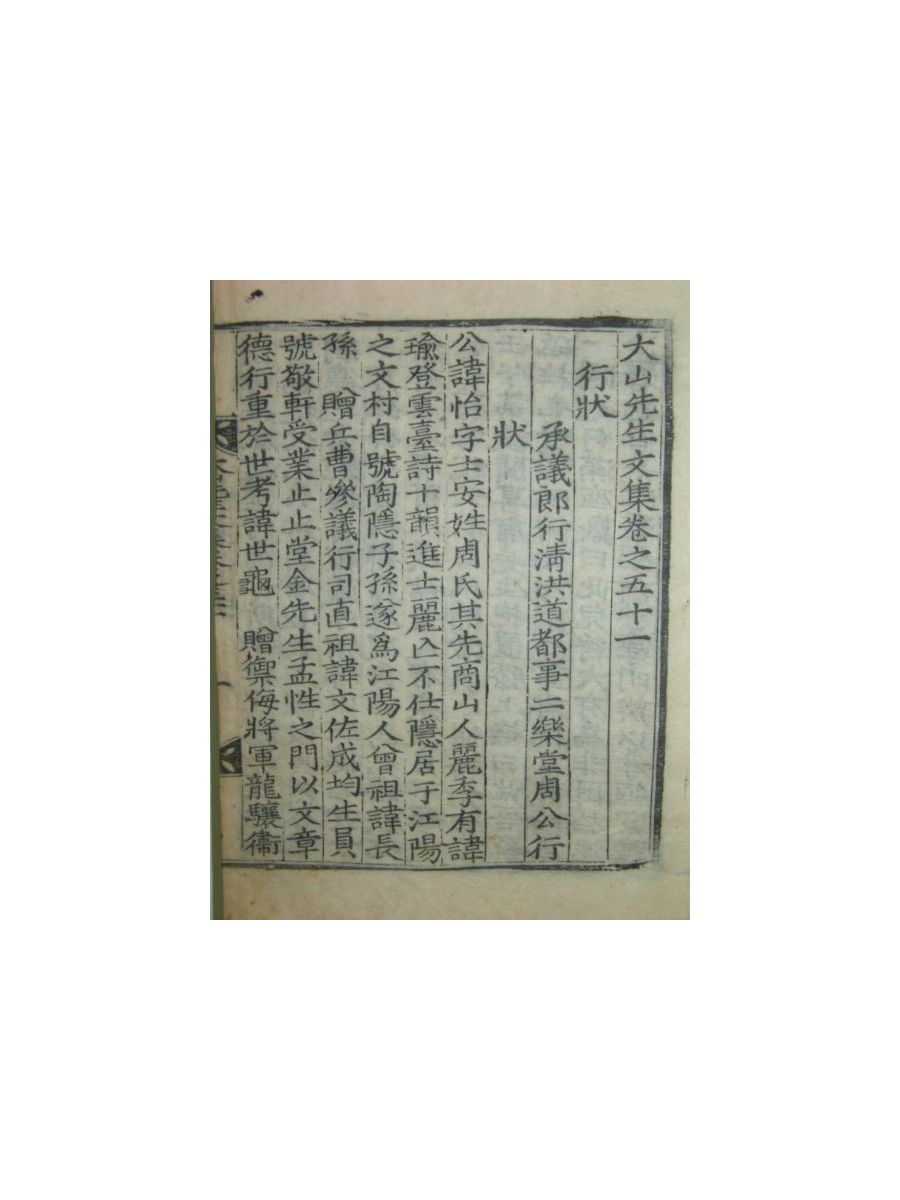 大山先生文集卷之五十一
行狀
承議郎行淸洪道都事二樂堂周公行
狀
公諱怡字士安姓周氏其先商山人麗季有諱
瑜登雲臺詩十韻進士麗亾不仕隱居于江陽
之文村自號陶隱子孫遂爲江陽人曾祖諱長
孫 贈兵曹參議行司直祖諱文佐成均生員
號敬軒受業止止堂金先生孟性之門以文章
德行重於世考諱世龜 贈禦侮將軍龍驤衞